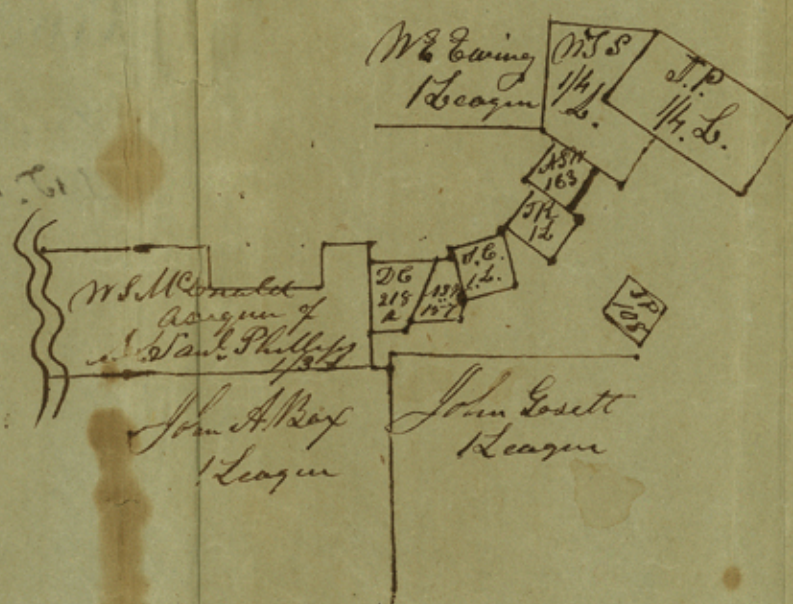 W E Ewing
1 League
W S S
1/4
L.
J. P.
1/4. L.
ASW
163
JR
1 L
S. C.
1. L.
DC
218
a
157
JP
108
W S. McDonald
assignee of
Saml. Phillips
1/3 L
John A. Box
1 League
John Gosett
1 League